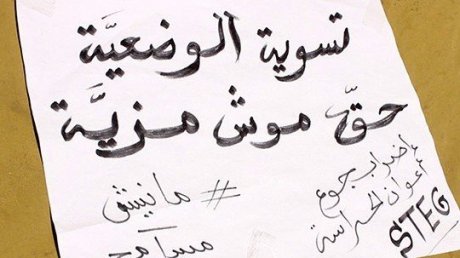 تسوية الوضعيَّة
حقّ موش مزيَّة
إضراب جوع
أعوان الحراسة
STEG
# مانيش
مسامح